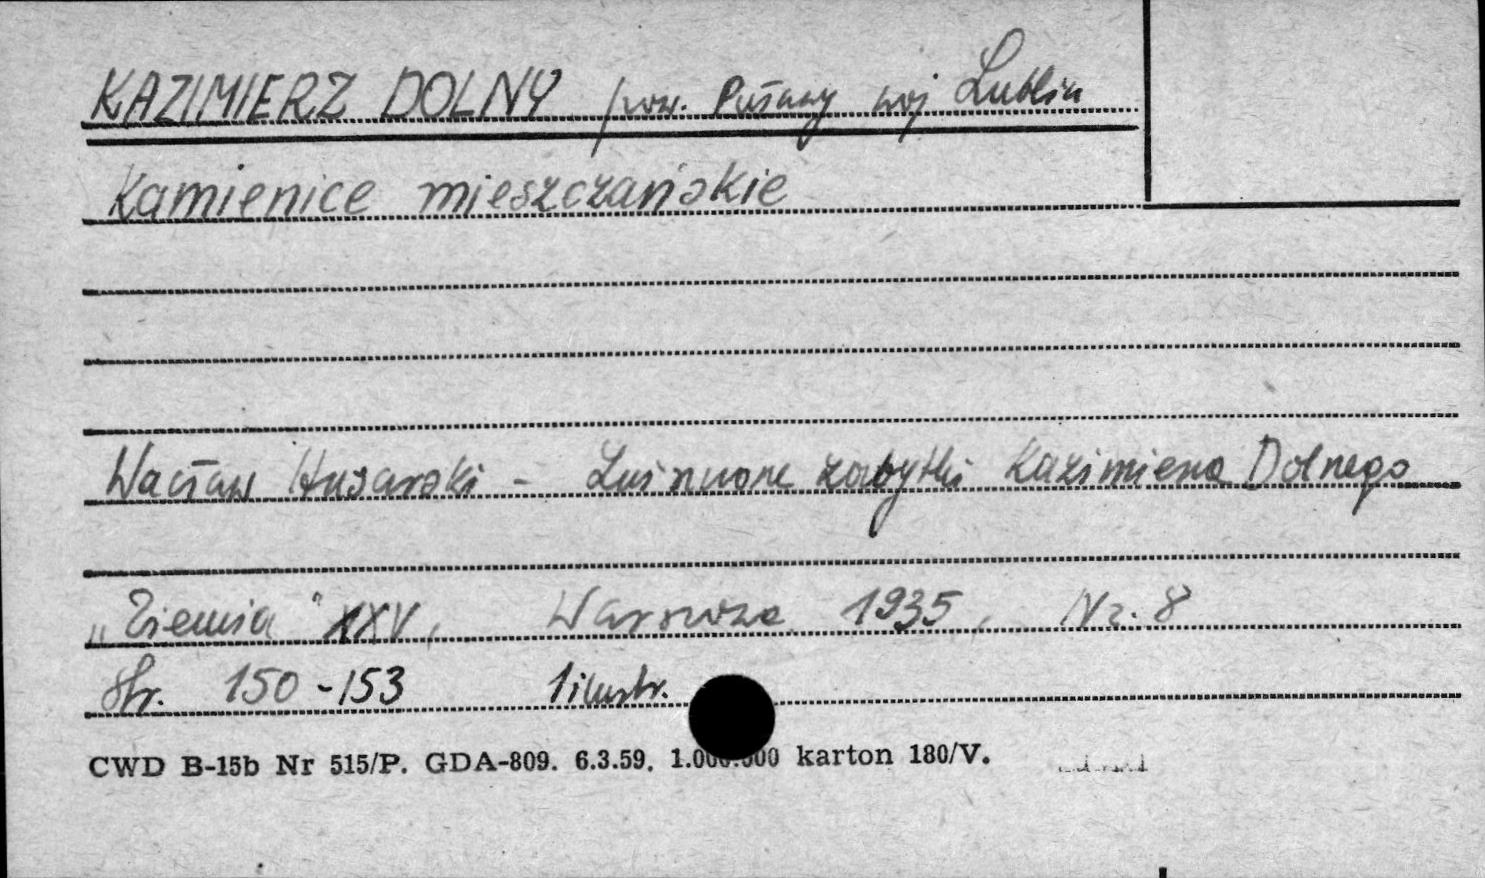 KAZIMIERZ DOLNY pow. Puławy woj Lublin
Kamienice mieszczańskie
Wacław Husarski - zabytki Kazimierza Dolnego
„Ziemia" XXV, Warszawa 1935, Nr. 8
Str. 150-153 1 ilustr.
CWD B-15b Nr 515/P. GDA-809. 6.3.59. 1.000.000 karton 180/V.